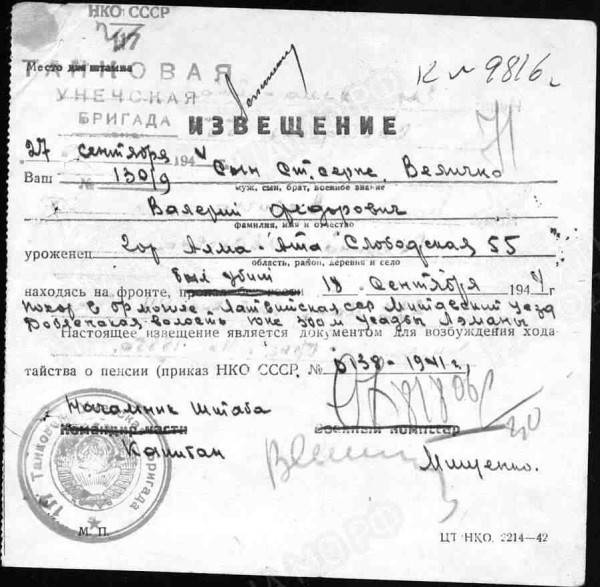 НКО СССР
117
Место для штампа
ТАНКОВАЯ
УНЕЧСКАЯ
БРИГАДА
к л 9816г
ИЗВЕЩЕНИЕ
27 сентября 1944
№ 130/9
Ваш сын ст. серж. Величко
муж, сын, брат, военное звание
Валерий Федорович
фамилия, имя и отчество
уроженец гор Алма-Ата Слободская 55
область, район, деревня и село
находясь на фронте, был убит 18 сентября 1944 г
похор в бр могиле. Латвийская сср Митавский уезд
волость юж 300 м Усадьбы
Настоящее извещение является документом для возбуждения хода
тайства о пенсии (приказ НКО СССР, № 0138-1941г.
Начальник штаба
Командир части Военный комиссар
Капитан Мищенко.
М. П.
ЦТ НКО. 2214—42